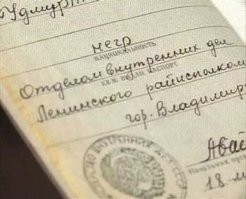 Удмурт
негр
национальность
Отделом внутренних дел
кем выдан паспорт
Ленинского райисполком
гор. Владимир
Начальник
18 м